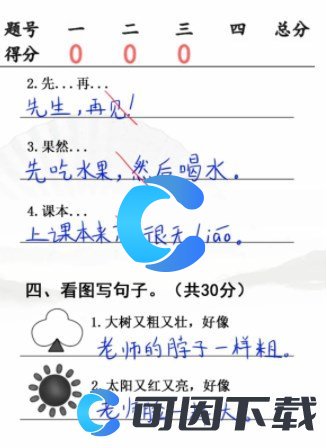 题号 一 二 三 四 总分
得分 0 0 0
2. 先...再...
先生，再见！
3. 果然...
先吃水果，然后喝水。
4. 课本...
上课本来 很无liáo。
四、看图写句子。（共30分）
1. 大树又粗又壮，好像
老师的脖子一样粗。
2. 太阳又红又亮，好像
老师
可因下载